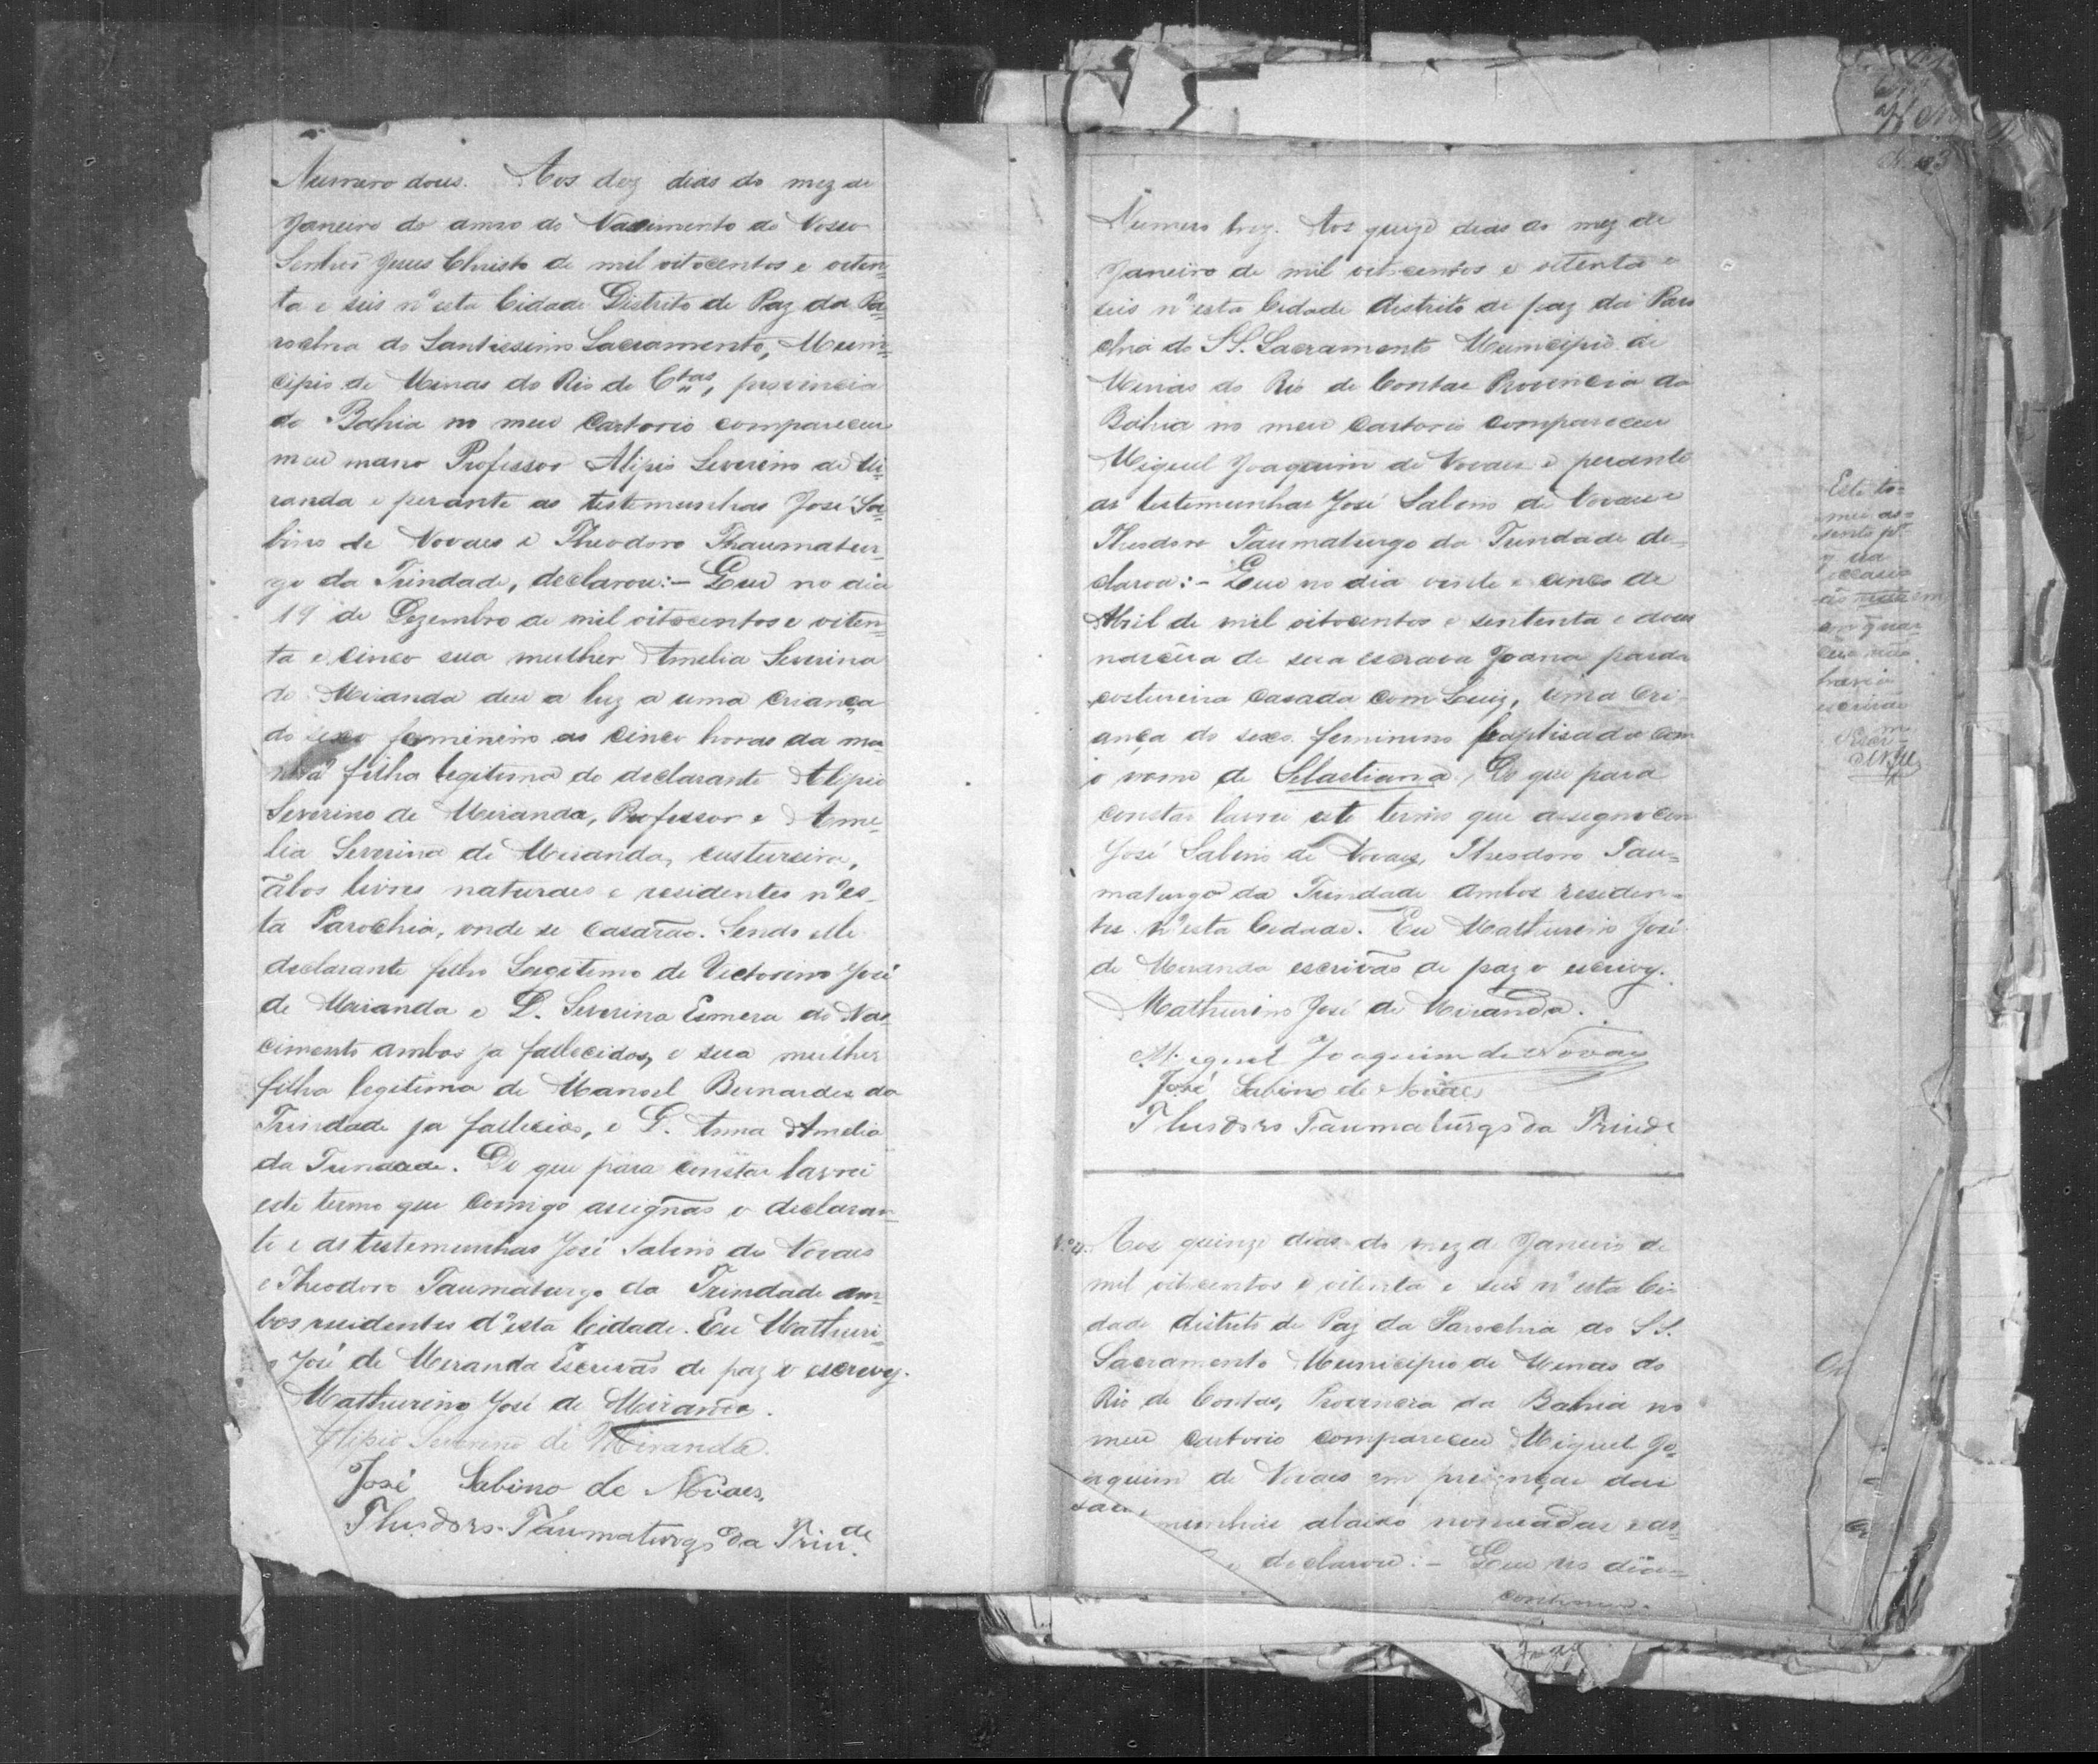 Numero dous. Aos dez dias do mez de
Janeiro do anno do Nascimento de Nosso
Senhor Jesus Christo de mil oitocentos e oiten-
ta e seis n'esta Cidade Distrito de Paz da Pa-
rochia do Santissimo Sacramento, Muni-
cipio de Minas do Rio de Ctas, provincia
da Bahia no meu Cartorio compareceu
meu mano Professor Alipio Severino de Mi-
randa e perante as testemunhas José Sa-
bino de Novaes e Theodoro Thaumatur-
go da Trindade, declarou:- Que no dia
19 de Dezembro de mil oitocentos e oiten-
ta e cinco sua mulher Amelia Severina
de Miranda deu a luz a uma criança
do sexo femineno as cinco horas da ma-
nhã filha legitima do declarante Alipio
Severino de Miranda, Professor e Ame-
lia Severina de Miranda, custureira,
ãbos livres naturaes e residentes n'es-
ta Parochia, onde se casarão. Sendo elle
declarante filho Legitimo de Victorino José
de Miranda e D. Severina Esmera do Nas-
cimento ambos ja fallecidos, e sua mulher
filha legitima de Manoel Bernardes da
Trindade ja fallecido, e D. Anna Amelia
da Trindade. Do que para constar lavrei
este termo que comigo assignão o declaran-
te e as testemunhas José Sabino de Novaes
e Theodoro Taumaturgo da Trindade am-
bos residentes d'esta Cidade. Eu Mathuri-
o José de Miranda Escrivão de paz o escrevy.
Mathurino José de Miranda.
Alipio Severino de Miranda.
José Sabino de Nóvaes,
Theodoro Thaumaturgo da Trinde.
Numero trez. Aos quize dias do mez de
Janeiro de mil oitocentos e oitenta e
seis n'esta Cidade distrito de paz da Paro
chia do SS. Sacramento Municipio de
Minas do Rio de Contas Provincia da
Bahia no meu Cartorio compareceu
Miguel Joaquim de Novaes e perante
as testemunhas José Sabino de Novaes e
Theodoro Taumaturgo da Trindade de-
clarou:- Que no dia vinte e cinco de
Abril de mil oitocentos e sententa e dous
nascêra de sua escrava Joana parda
costureira casada com Luiz, uma cri-
ança do sexo feminino baptisada com
o nome de Sebastiana. Do que para
constar lavrei este termo que assigno com
José Sabino de Novaes, Theodoro Tau-
maturgo da Trindade ambos residen-
tes n'esta Cidade. Eu Mathurino José
de Miranda escrivão de paz o escrivy.
Mathurino José de Miranda.
Miguel Joaquim de Novaes
José Sabino de Nóvaes
Theodoro Taumaturgo da Trinde
Este to-
mei as-
sento
havia
escrivão
No 4. Aos quinze dias do mez de Janeiro de
mil oitocentos e oitenta e seis n'esta Ci-
dade distrito de Paz da Parochia do SS.
Sacramento Municipio de Minas do
Rio de Contas, Provincia da Bahia no
meu cartorio compareceu Miguel Jo-
aquim de Novaes em prezença das
munhas abaixo nomeadas e as-
declarou:- Que no dia-
continua.